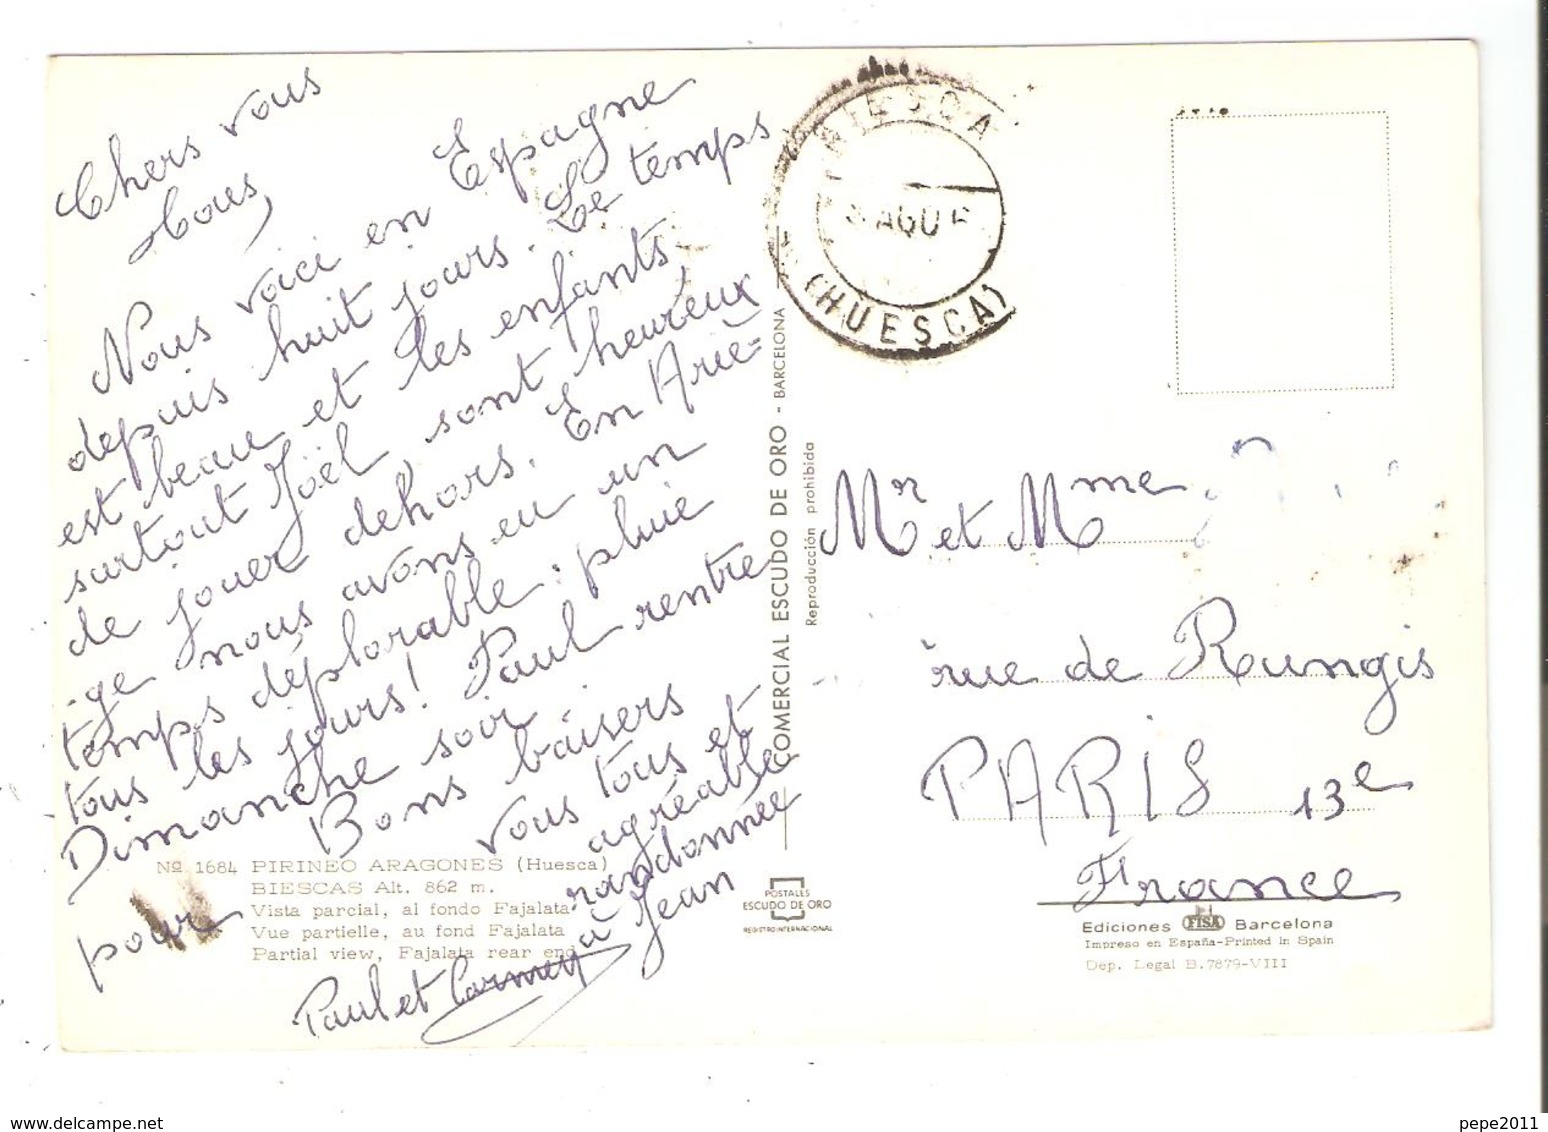 Chers vous
tous,
Nous voici en Espagne
depuis huit jours. Le temps
est beau et les enfants,
surtout Joël sont heureux
de jouer dehors. En Ariè-
-ge nous avons eu un
temps déplorable : pluie
tous les jours! Paul rentre
Dimanche soir
Bons baisers
pour vous tous et
agréable
randonnée
à Jean
Paul et Carmen
No 1684 PIRINEO ARAGONES (Huesca)
BIESCAS Alt. 862 m.
Vista parcial, al fondo Fajalata
Vue partielle, au fond Fajalata
Partial view, Fajalata rear end
COMERCIAL ESCUDO DE ORO - BARCELONA
Reproducción prohibida
POSTALES
ESCUDO DE ORO
REGISTRO INTERNACIONAL
AGO
(HUESCA)
Mr et Mme
rue de Rungis
PARIS 13e
France
Ediciones FISA Barcelona
Impreso en España-Printed in Spain
Dep. Legal B.7879-VIII
delcampe.net
pepe2011